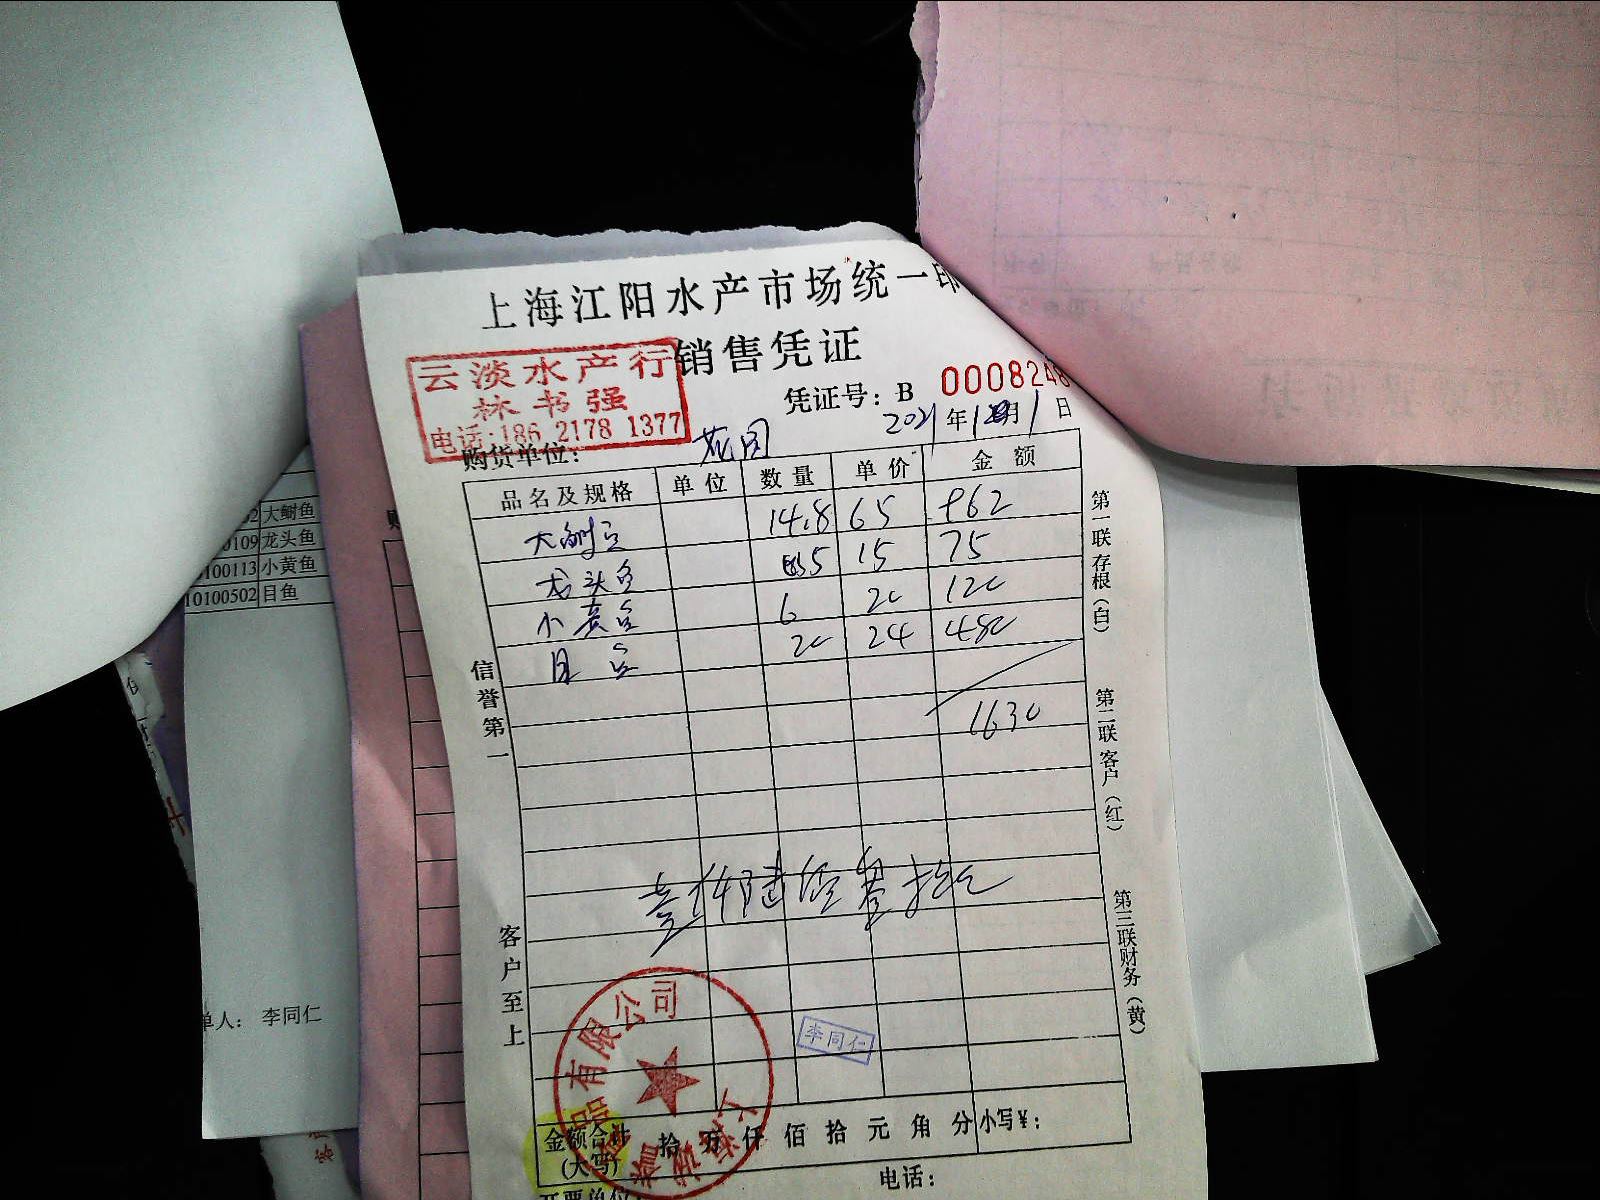 上海江阳水产市场统一印
销售凭证
云淡水产行
林书强
电话:186 2178 1377
凭证号: B 0008248
2021 年 月 1 日
购货单位: 花园
品名及规格 单位 数量 单价 金额
大鲥鱼 14.8 65 962
龙头鱼 5 15 75
小黄鱼 6 20 120
目鱼 20 24 480
1630
信誉第一
客户至上
第一联存根(白)
第二联客户(红)
第三联财务(黄)
品有限公司
李同仁
金额合计
(大写)
拾 万 仟 佰 拾 元 角 分 小写¥:
电话:
开票单位:
02 大鲥鱼
0109 龙头鱼
100113 小黄鱼
10100502 目鱼
单人: 李同仁